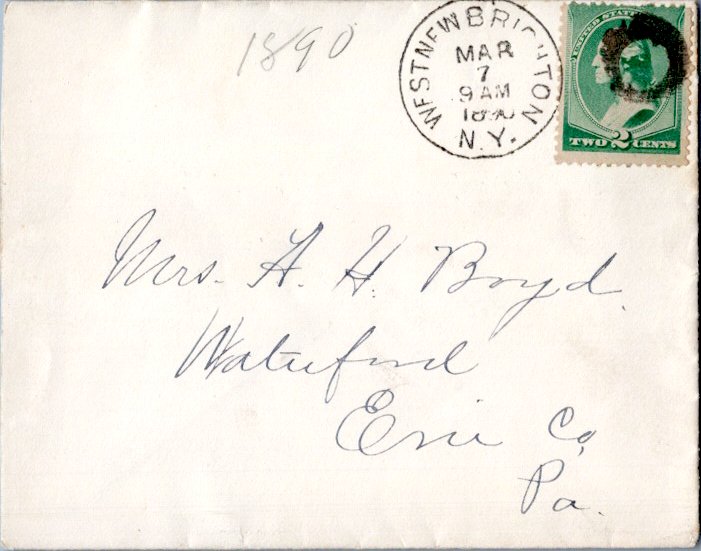 1890
WEST NEW BRIGHTON
MAR
7
9 AM
1890
N.Y.
UNITED STATES
TWO 2 CENTS
Mrs. A. H. Boyd.
Waterford
Erie Co,
Pa.